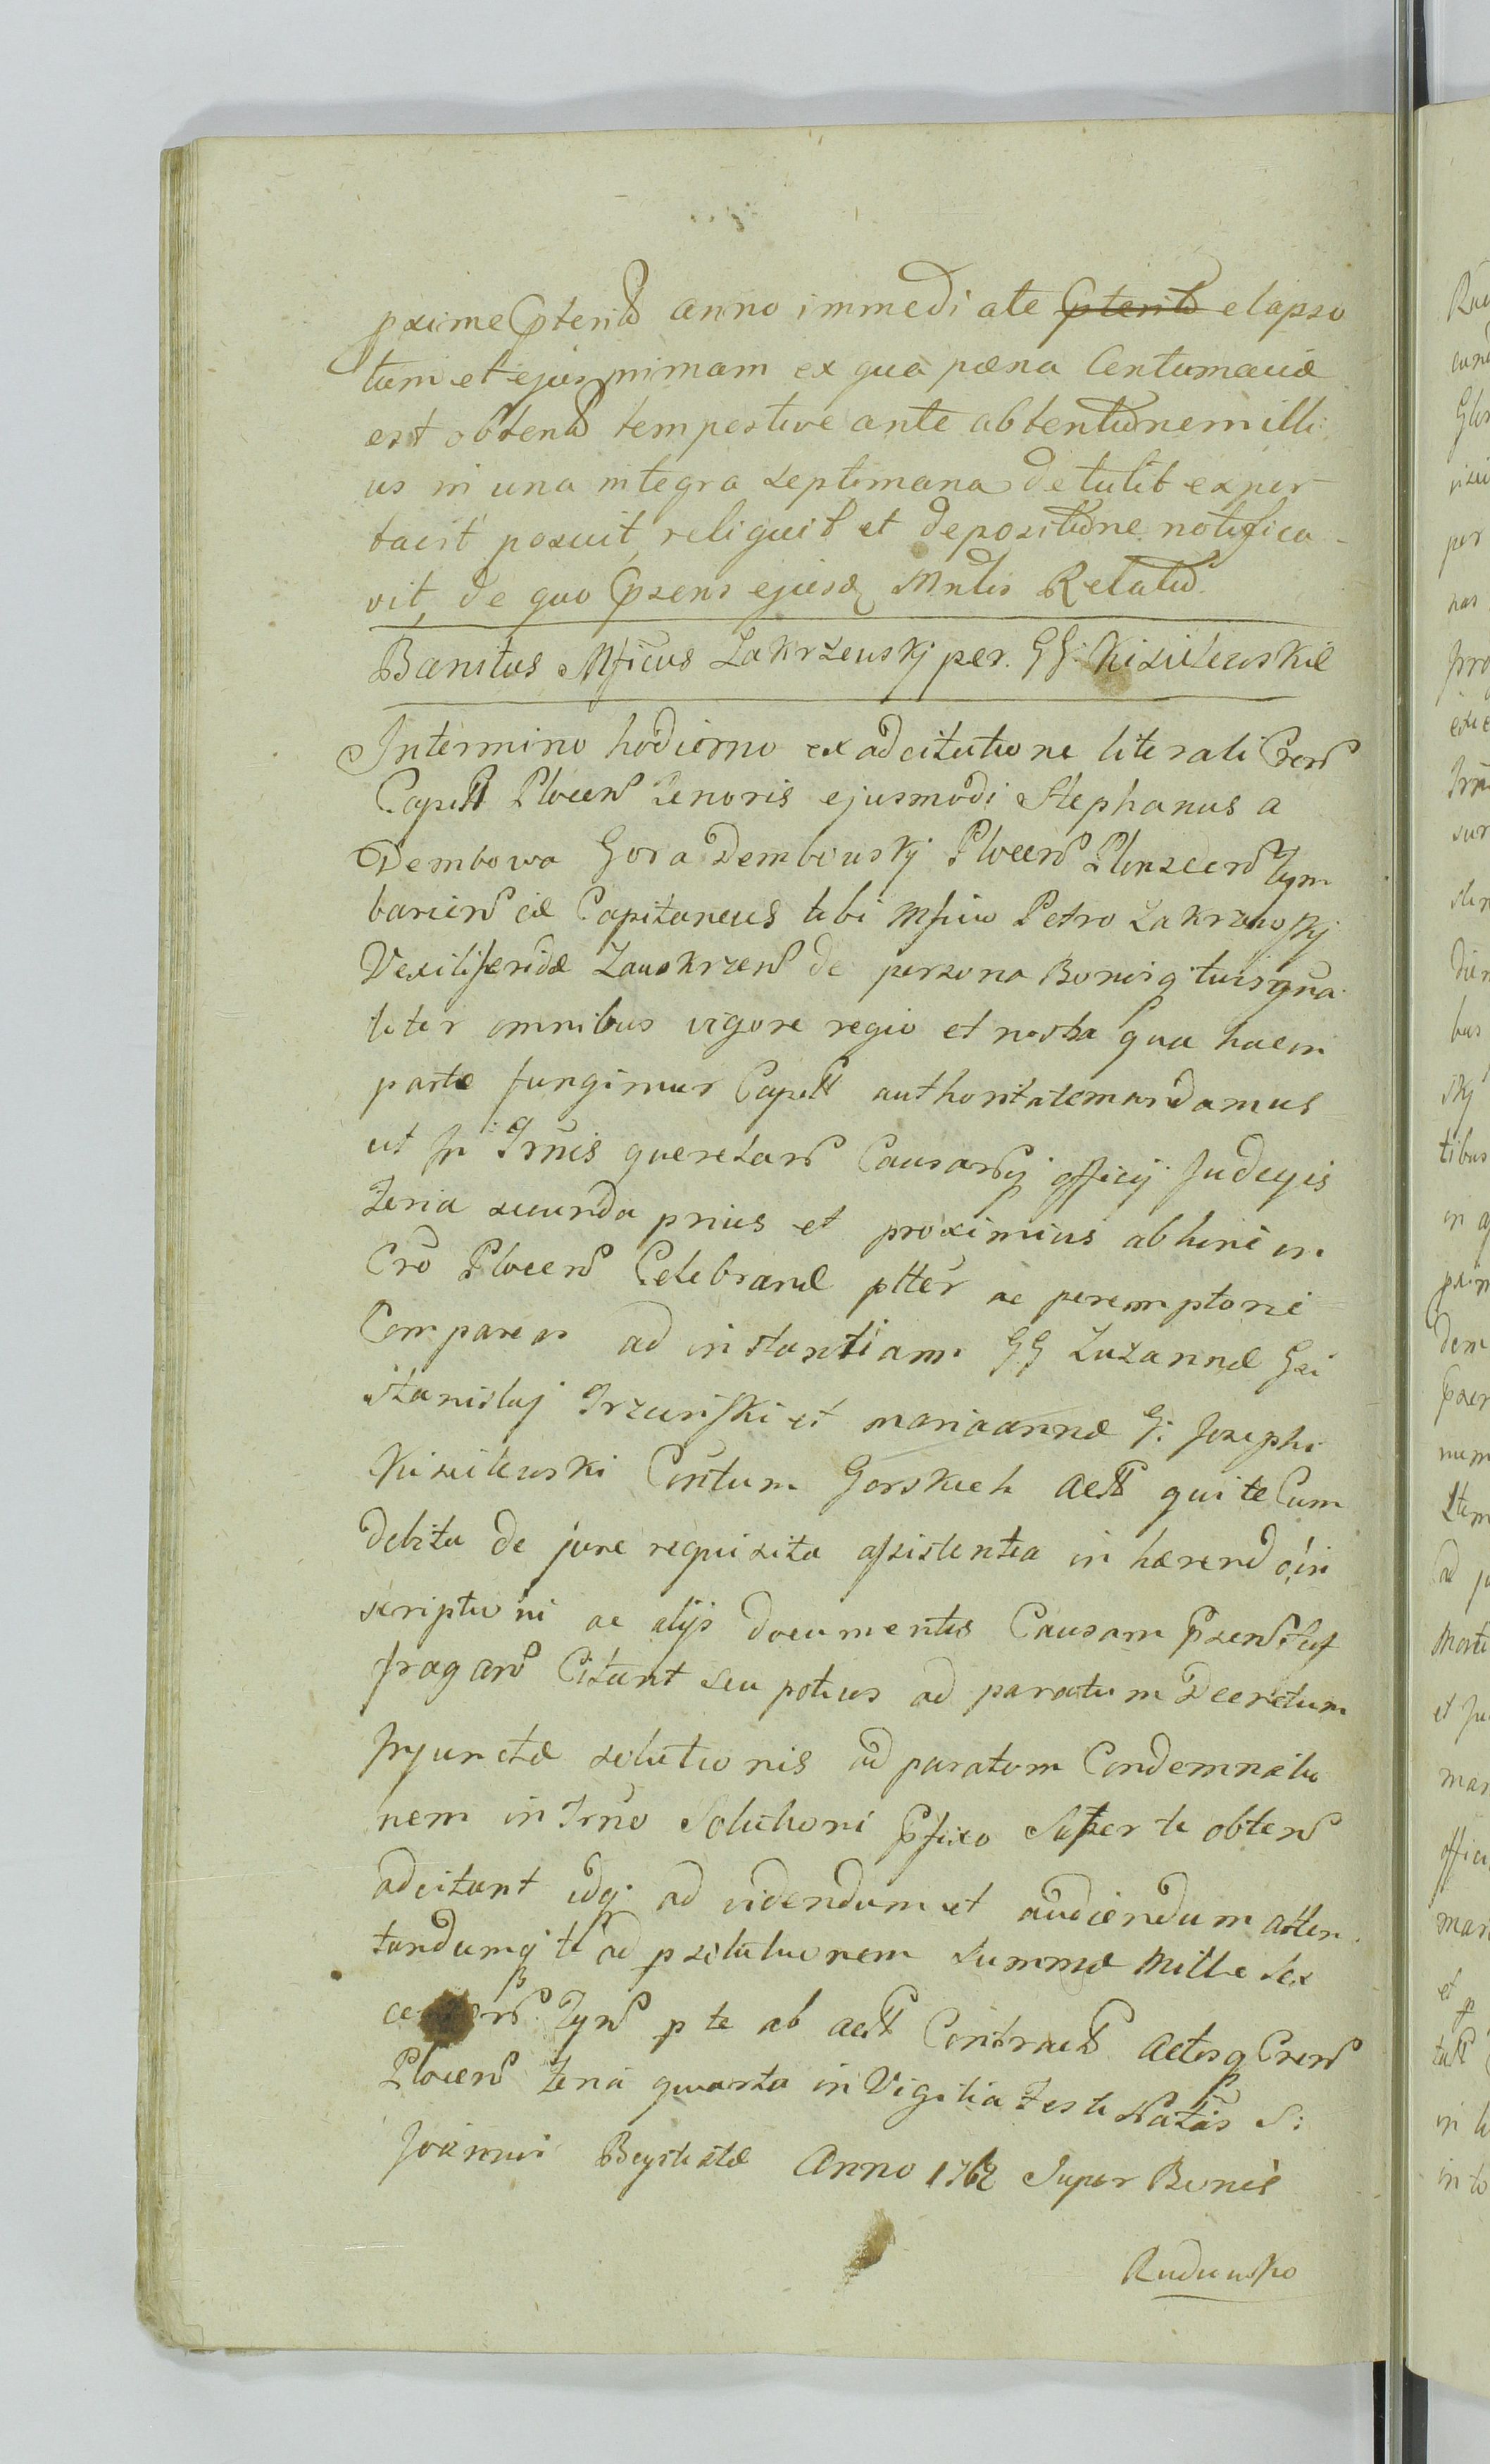 pxime pterito anno immediate pterito elapso
tum et ejus mimam ex qua pæna Centumaciæ
est obtenta tempestive ante obtentionem illi
us in una integra septimana detulit expor-
tavit posuit reliquit et depositione notifica-
vit, de quo pzens ejusdq Mntis Relatio
Banitus Mficus Zakrzewskj per GG. Kisielewskie
In termino hodierno ex adcitatione literali Cren
Capitt Plocen tenoris ejusmodi Stephanus a
Dembowa Gora Dembowskj Plocen Plonscen Tym
barcien etc Capitaneus tibi Mfico Petro Zakrzewskj
Vexilliferidæ Zawskrzen de persona Bonisq tuis gna
liter omnibus vigore regio et nostra qua hac in
parte fungimur Capitt authoritate mandamus
ut In Trnis querelar Causarq officij Judcyis
Feria secunda prius et proximius ab hinc in
Cro Plocen Celebrand pltter ac peremptorie
Compareas ad instantiam GG Zuzannæ Gsi
Stanislaj Trzcinski et mariaannæ G: Josephi
Kisielewski Contum Gorskich Actt qui te Cum
debita de jure requisita assistentia in hærend o in
scriptioni ac alijs documentis Causam pzen
fragan Citant seu potius ad paratum Decretum
Injunctæ solutionis ad paratam Condemnatio
nem in Trno Solutioni pfixo Super te obten
adcitant idq ad videndum et audiendum atten
tandumq te ad psolutionem summæ Mille sex
Tyn p te ab actt Contract Actisq Cren
Plocen Feria quarta in Vigilia Festi Natis S:
Joannis Baptistæ Anno 1762 Super Bonis
Rudowsko